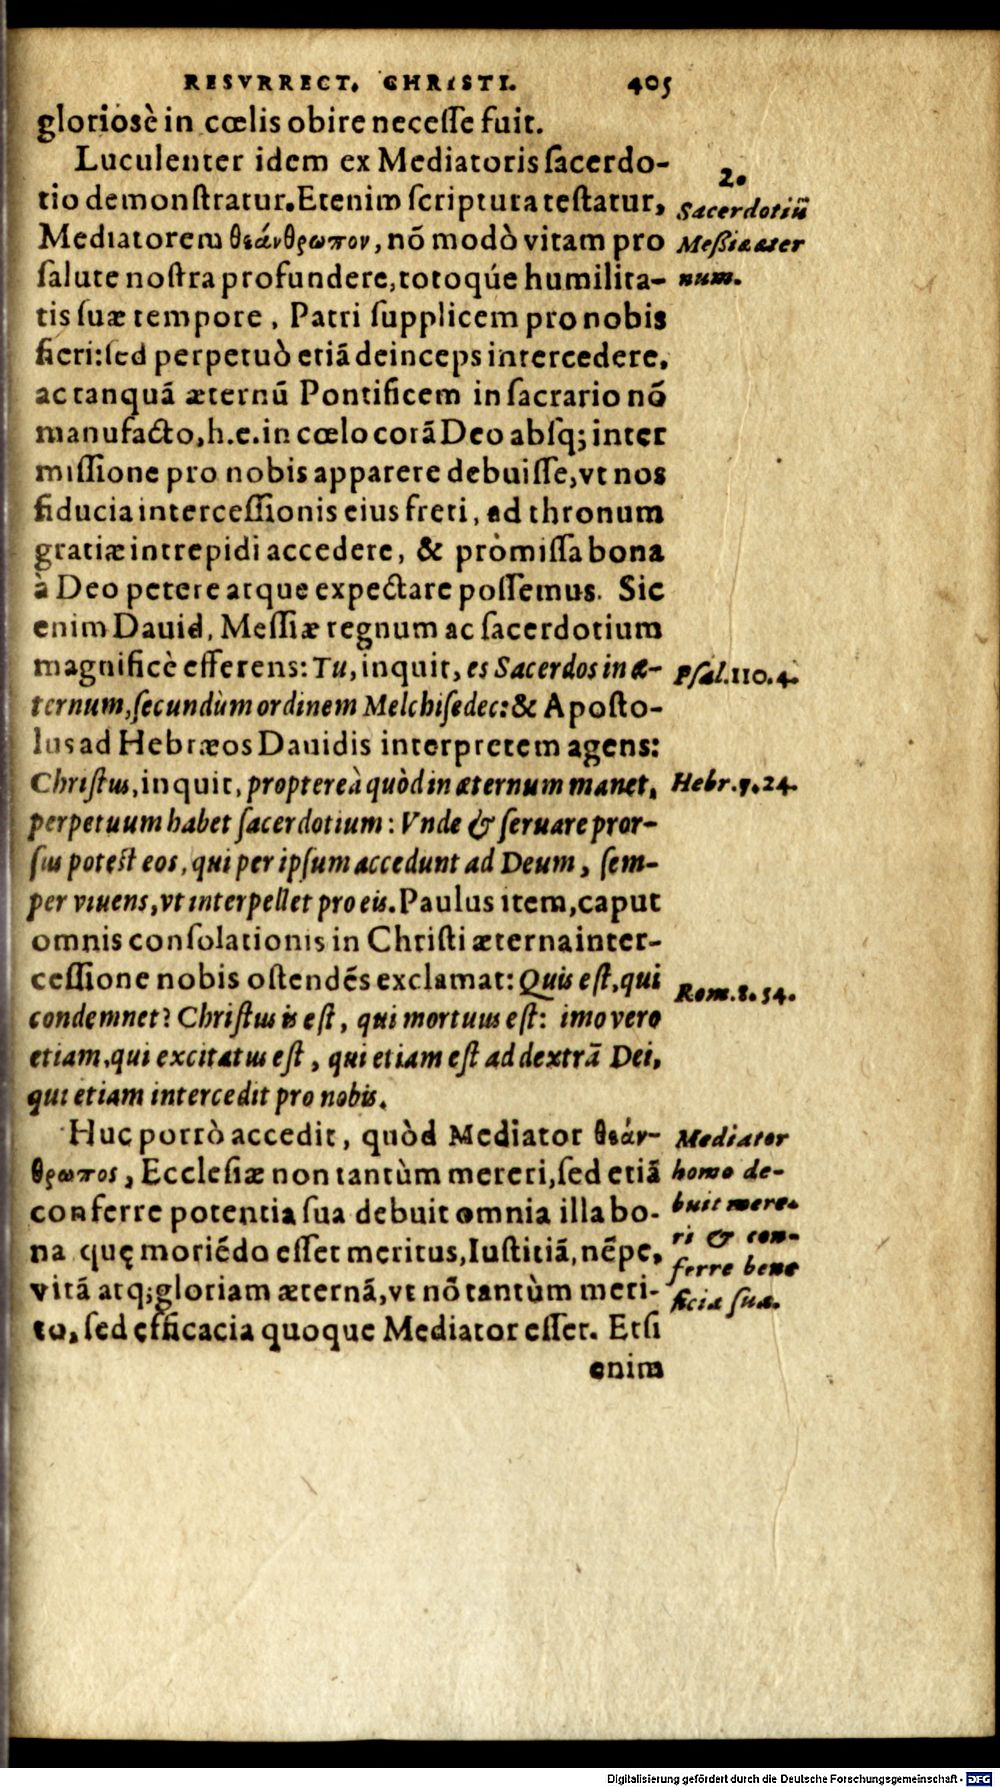 RESVRRECT. CHRISTI. 405
gloriosè in cœlis obire necesse fuit.
Luculenter idem ex Mediatoris ſacerdo-
tio demonſtratur. Etenim ſcriptura teſtatur,
Mediatorem θεάνθρωπον, nõ modò vitam pro
ſalute noſtra profundere, totoq́ue humilita-
tis ſuæ tempore, Patri ſupplicem pro nobis
fieri: ſed perpetuò etiã deinceps intercedere,
ac tanquã æternũ Pontificem in ſacrario nõ
manufacto, h.e. in cœlo corã Deo abſq; inter
miſſione pro nobis apparere debuiſſe, vt nos
fiducia interceſſionis eius freti, ad thronum
gratiæ intrepidi accedere, & pròmiſſa bona
à Deo petere atque expectare poſſemus. Sic
enim Dauid, Meſſiæ regnum ac ſacerdotium
magnificè efferens: Tu, inquit, es Sacerdos in æ-
ternum, ſecundùm ordinem Melchiſedec: & Apoſto-
lus ad Hebræos Dauidis interpretem agens:
Chriſtus, inquit, proptereà quòd in æternum manet,
perpetuum habet ſacerdotium: Vnde & ſeruare pror-
ſus poteſt eos, qui per ipſum accedunt ad Deum, ſem-
per viuens, vt interpellet pro eis. Paulus item, caput
omnis conſolationis in Chriſti æterna inter-
ceſſione nobis oſtendẽs exclamat: Quis eſt, qui
condemnet? Chriſtus is eſt, qui mortuus eſt: imo vero
etiam, qui excitatus eſt, qui etiam eſt ad dextrã Dei,
qui etiam intercedit pro nobis.
Huc porrò accedit, quòd Mediator θεάν-
θρωπος, Eccleſiæ non tantùm mereri, ſed etiã
conferre potentia ſua debuit omnia illa bo-
na quę moriẽdo eſſet meritus, Iuſtitiã, nẽpe,
vitã atq; gloriam æternã, vt nõ tantùm meri-
to, ſed efficacia quoque Mediator eſſet. Etſi
enim
2.
Sacerdotiũ
Meßiæ æter
num.
Pſal. 110. 4.
Hebr. 7. 24.
Rom. 8. 34.
Mediator
homo de-
buit mere-
ri & con-
ferre bene
ficia ſua.
Digitalisierung gefördert durch die Deutsche Forschungsgemeinschaft - DFG